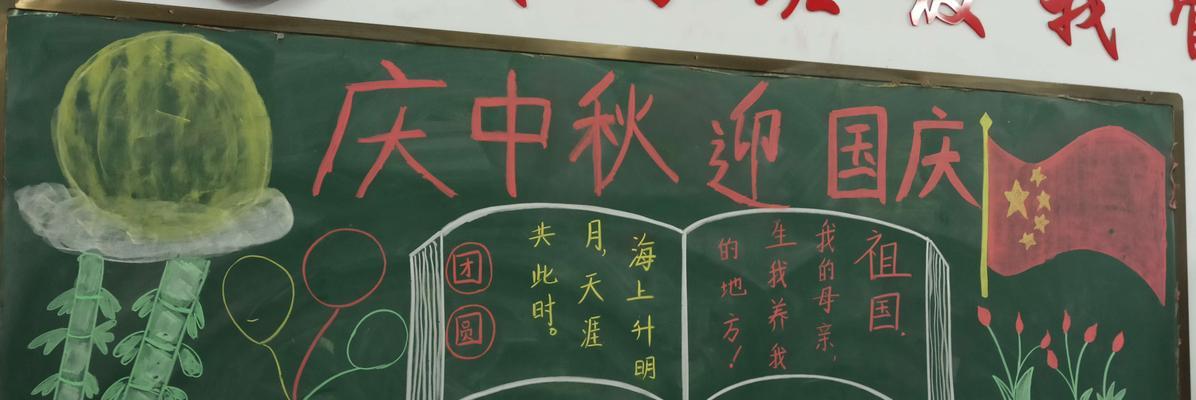 我
庆中秋 迎国庆
祖国.
我的母亲，
生我养我
的地方！
海上升明
月，天涯
共此时。
团圆